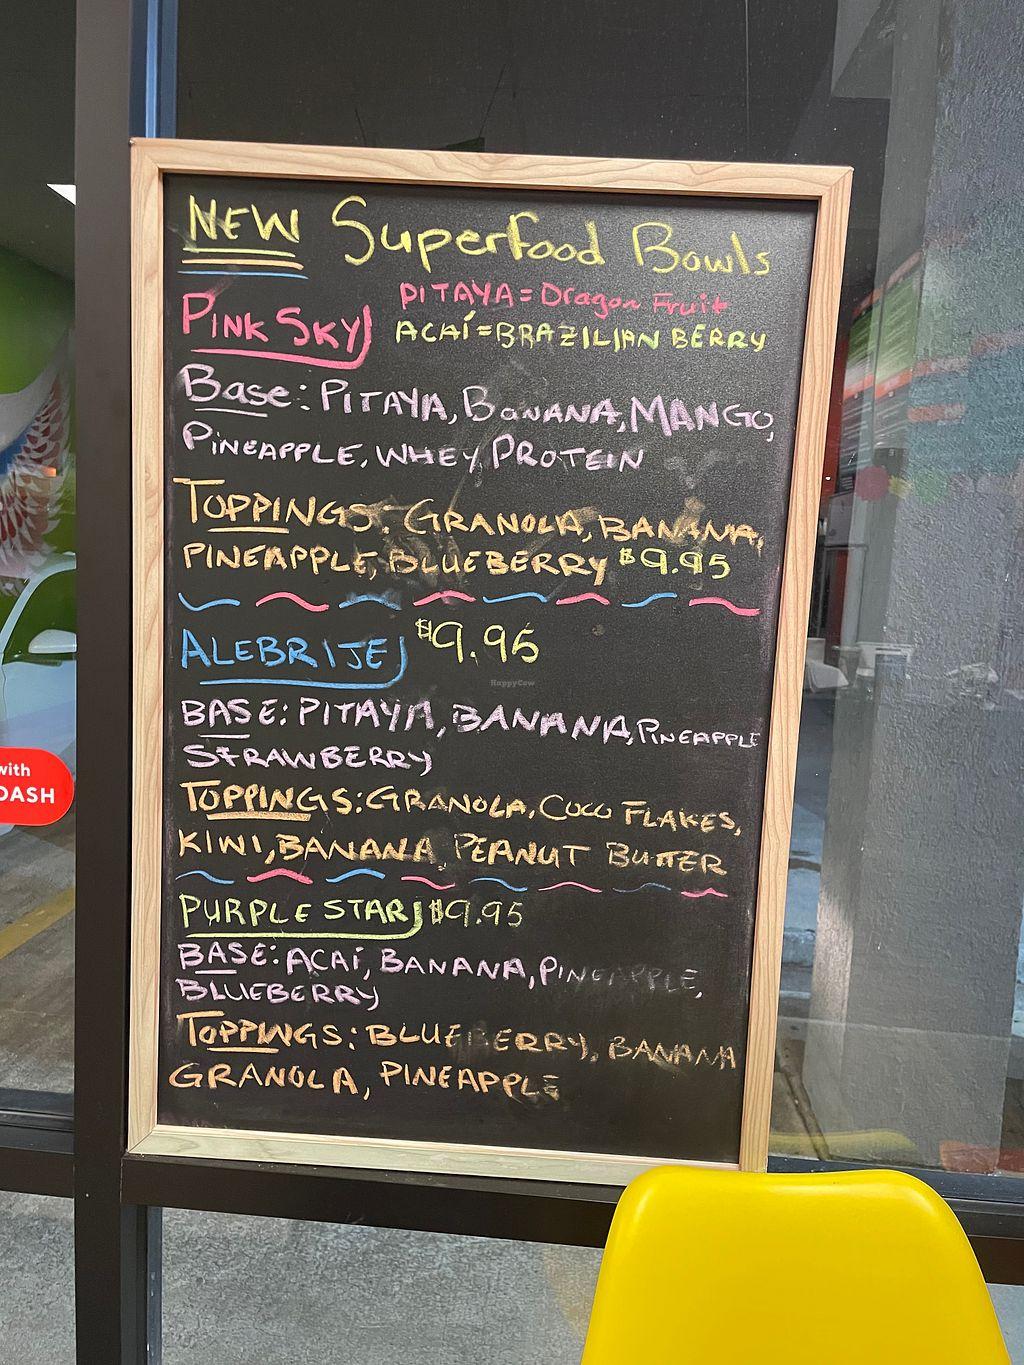 NEW Superfood Bowls
PINK SKY
PITAYA = Dragon Fruit
ACAÍ = BRAZILIAN BERRY
Base: PITAYA, BANANA, MANGO,
PINEAPPLE, WHEY PROTEIN
TOPPINGS: GRANOLA, BANANA,
PINEAPPLE, BLUEBERRY $9.95
ALEBRIJE $9.95
BASE: PITAYA, BANANA, PINEAPPLE
STRAWBERRY
TOPPINGS: GRANOLA, COCO FLAKES,
KIWI, BANANA, PEANUT BUTTER
PURPLE STAR $9.95
BASE: ACAÍ, BANANA, PINEAPPLE,
BLUEBERRY
TOPPINGS: BLUEBERRY, BANANA
GRANOLA, PINEAPPLE
with
DASH
HappyCow